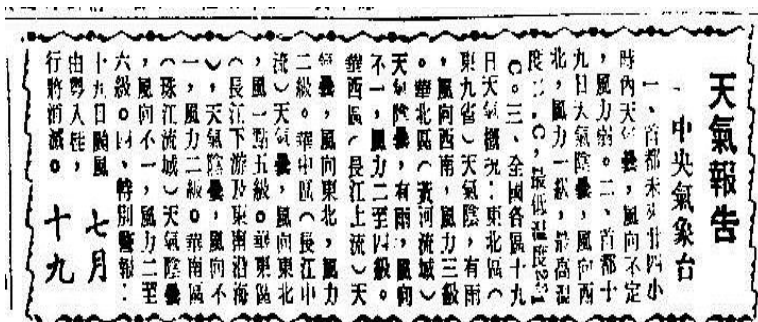 天氣報告
—中央氣象台
一、首都未來廿四小
時內天氣曇，風向不定
，風力弱。二、首都十
九日天氣陰曇，風向西
北，風力一級，最高溫
度，最低溫度
〇。三、全國各區十九
日天氣概況：東北區（
東九省）天氣陰，有雨
，風向西南，風力三級
。華北區（黃河流域）
天氣陰曇，有雨，風向
不一，風力二至四級。
華西區（長江上流）天
氣曇，風向東北，風力
二級。華中區（長江中
流）天氣曇，風向東北
，風一點五級。華東區
（長江下游及東南沿海
），天氣陰曇，風向不
一，風力二級。華南區
（珠江流域）天氣陰曇
，風向不一，風力二至
六級。四、特別警報：
十九日颱風
由粵入桂，
行將消滅。
七月
十九